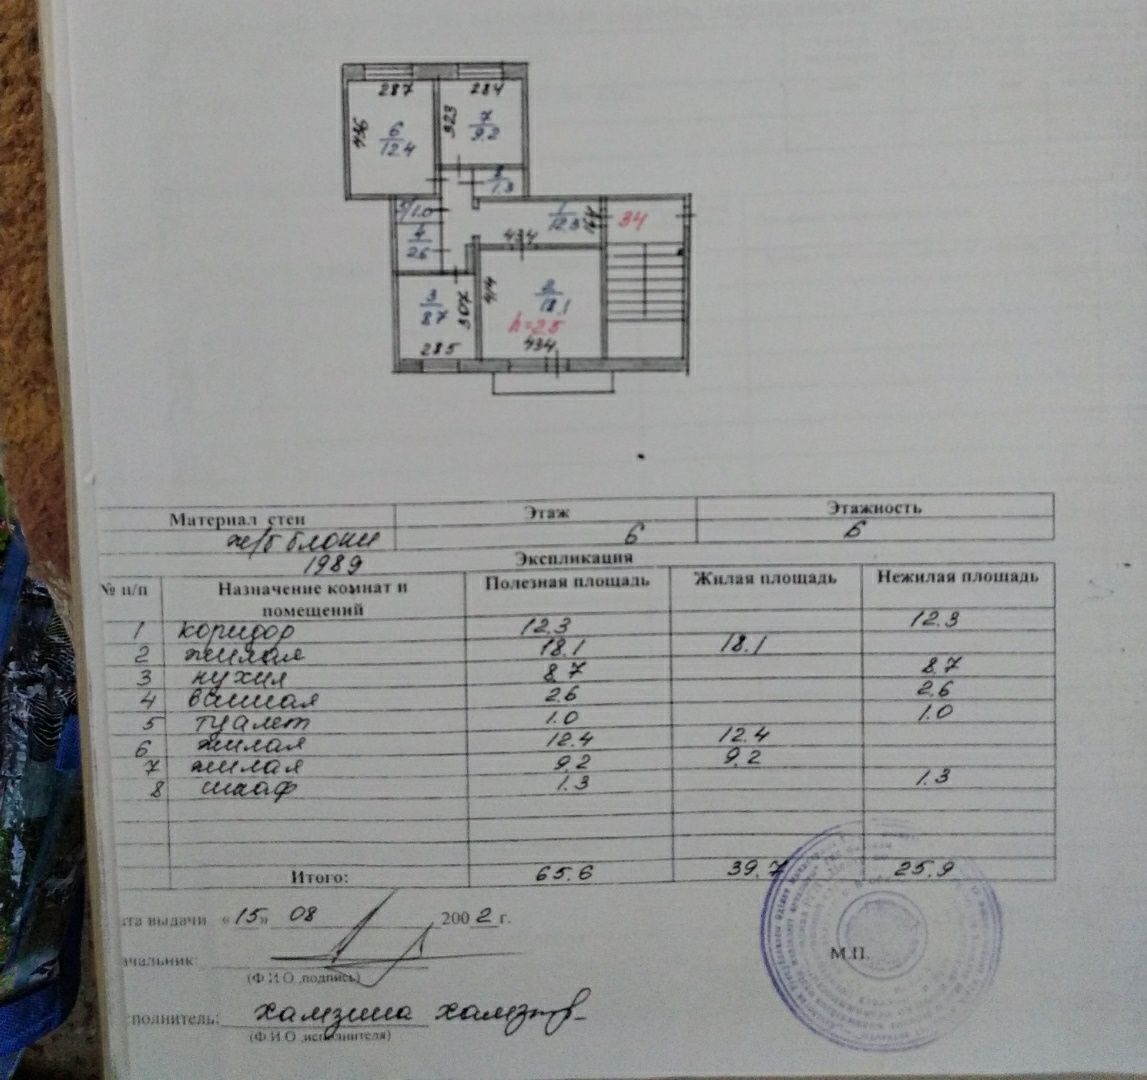 287 284
436 6 12.4 323 7 9.2
8 1.3
5 1.0 1 12.3 34
4 2.6 434
3 8.7 307 414 2 18.1
h=2.5
285 434
Материал стен Этаж Этажность
ж/б блоки 6 6
1989
Экспликация
№ п/п Назначение комнат и помещений Полезная площадь Жилая площадь Нежилая площадь
1 коридор 12.3 12.3
2 жилая 18.1 18.1
3 кухня 8.7 8.7
4 ванная 2.6 2.6
5 туалет 1.0 1.0
6 жилая 12.4 12.4
7 жилая 9.2 9.2
8 шкаф 1.3 1.3
Итого: 65.6 39.7 25.9
та выдачи «15» 08 2002 г.
чальник:
(Ф.И.О.,подпись)
М.П.
сполнитель: Хамзина
(Ф.И.О.,исполнителя)